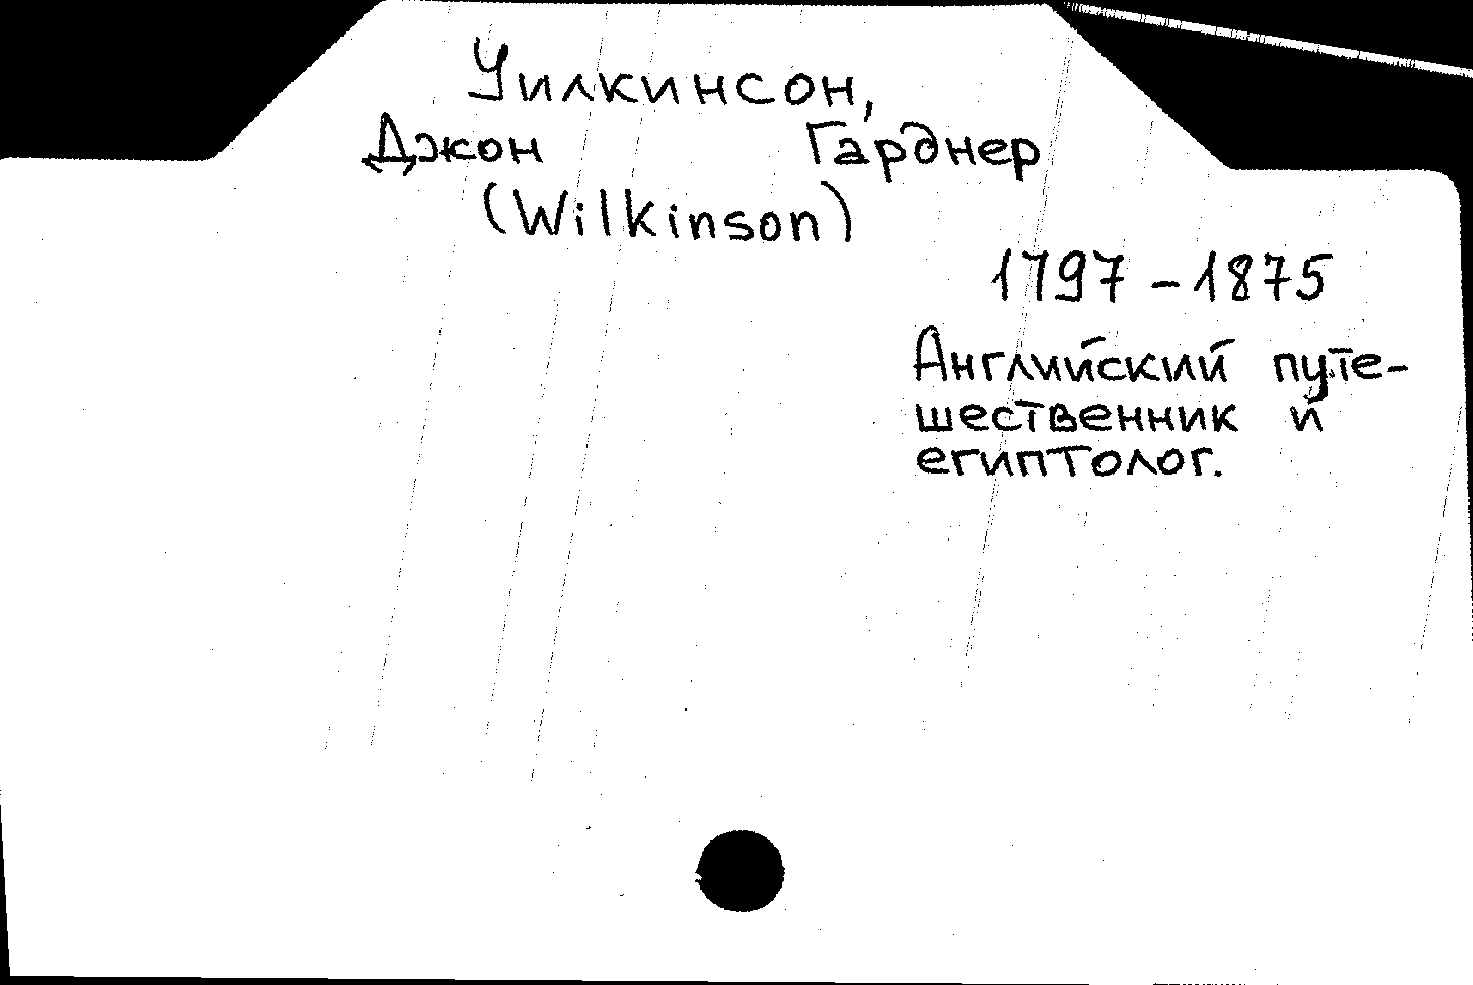 Уилкинсон,
Джон Гарднер
(Wilkinson)
1797 – 1875
Английский путе-
шественник и
египтолог.